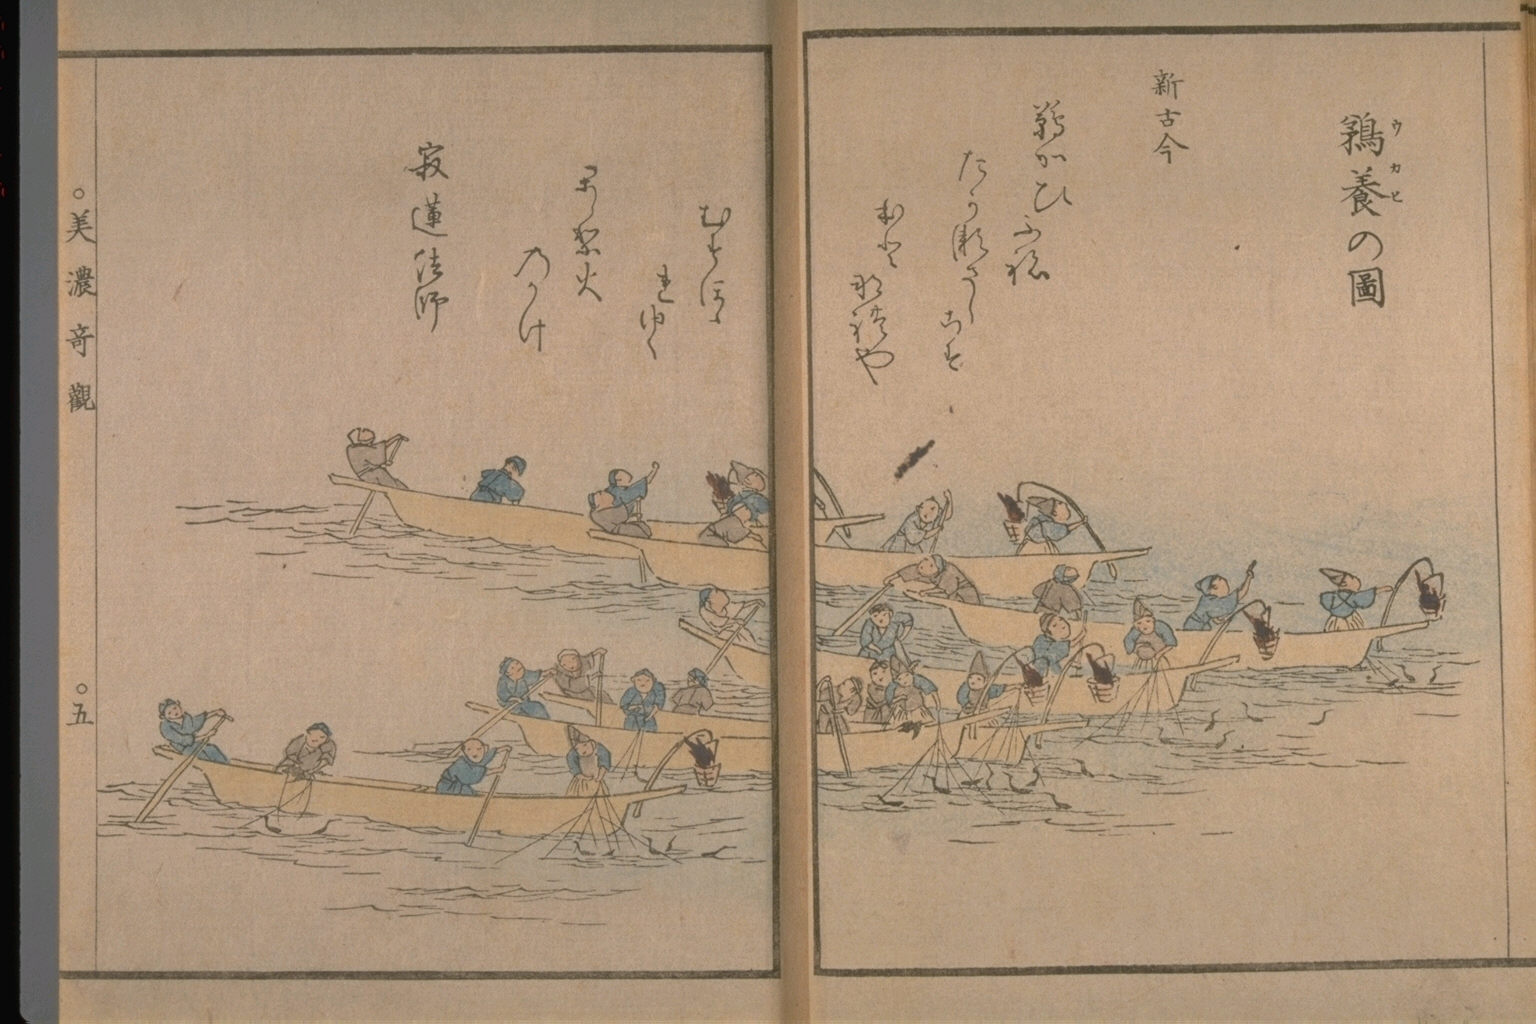 鵜養の圖
ウカヒ
新古今
鵜かひふね
たか瀬さしこす
ほとなれや
むすほゝ
れゆく
かゝり火
のかけ
寂蓮法師
○美濃奇觀
○五